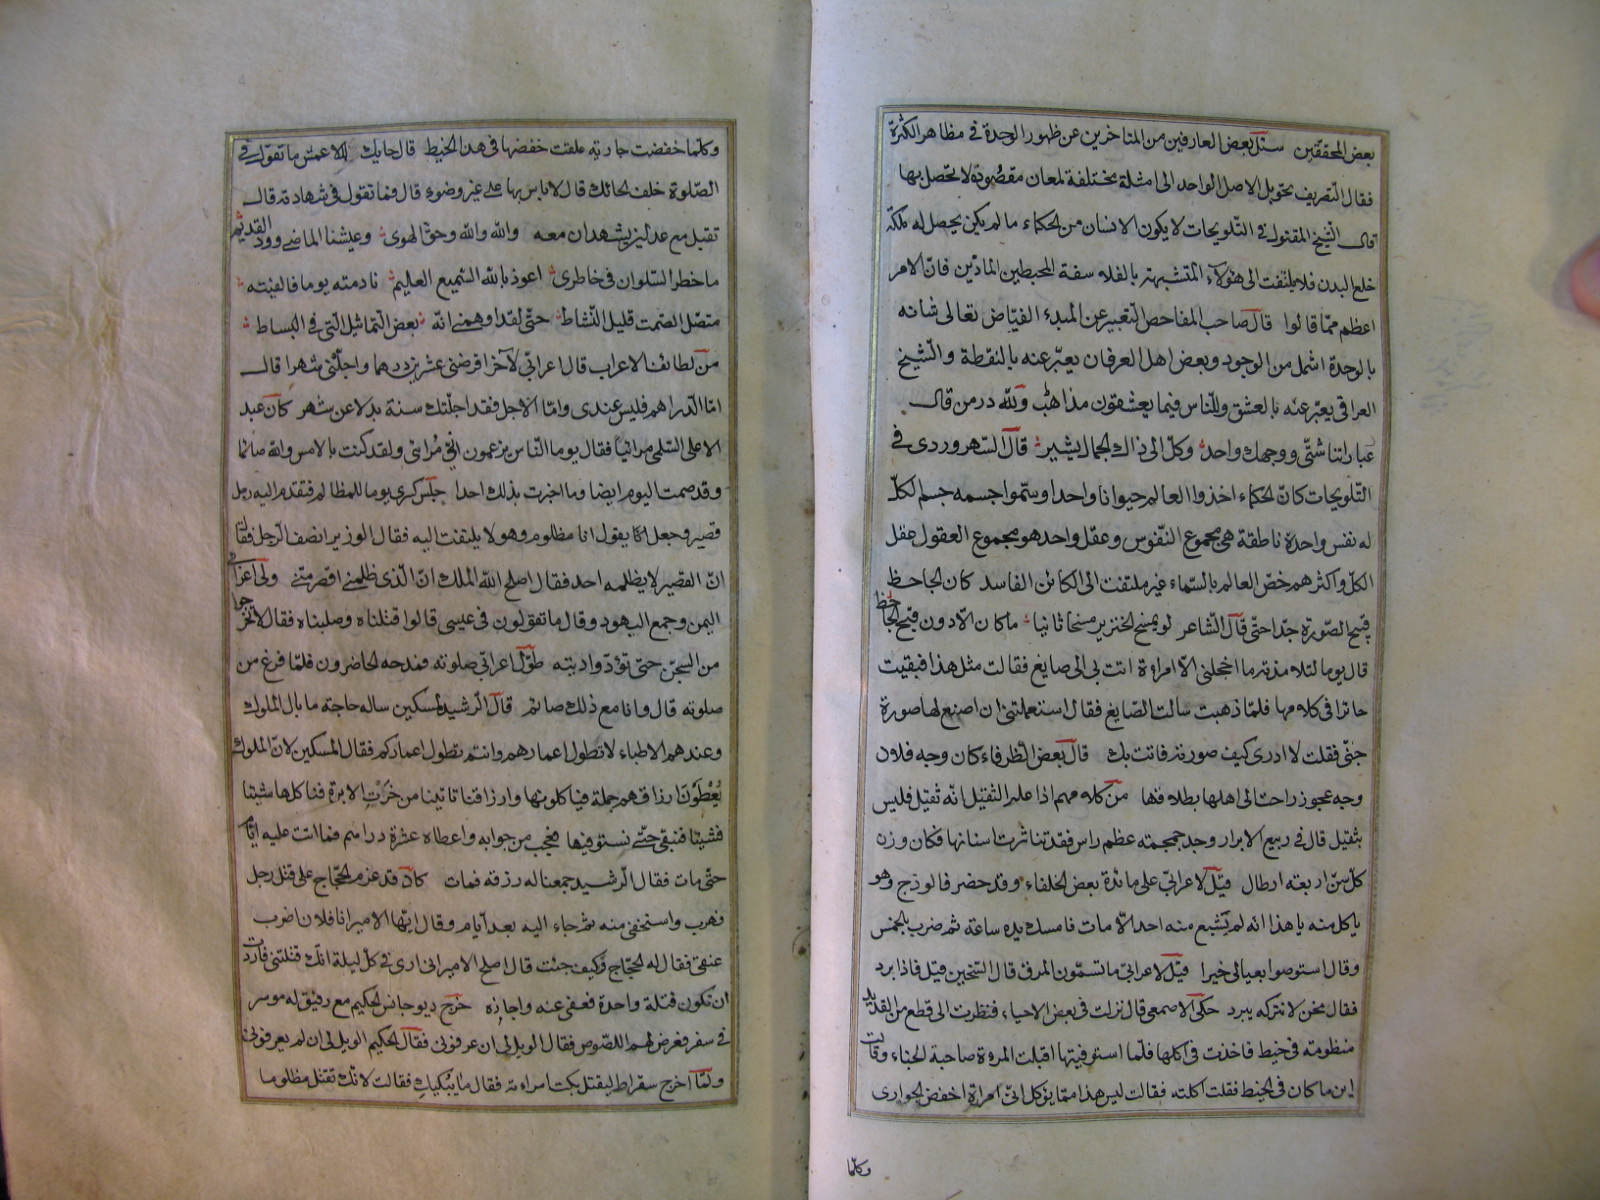 بعض المحققين سئل بعض العارفين من المتاخرين عن ظهور الوحدة في مظاهر الكثرة
فقال التصريف تحويل الاصل الواحد الى امثلة مختلفة لمعان مقصودة لا تحصل بها
قال الشيخ المقتول في التلويحات لا يكون الانسان من الحكماء ما لم يكن يحصل له ملكة
خلع البدن فلا يلتفت الى هؤلاء المتشبهة بالفلاسفة المخبطين المادين فان الامر
اعظم مما قالوا قال صاحب المفاحص التعبير عن المبدء الفياض تعالى شانه
بالوحدة اشمل من الوجود وبعض اهل العرفان يعبر عنه بالنقطة والشيخ
العراقي يعبر عنه بالعشق وللناس فيما يعشقون مذاهب ولله در من قال
عباراتنا شتى ووجهك واحد وكل الى ذاك الجمال يشير قال السهروردي في
التلويحات كان الحكماء اخذوا العالم حيوانا واحدا وسموا جسمه جسم الكل
له نفس واحدة ناطقة هي مجموع النفوس وعقل واحد هو مجموع العقول عقل
الكل واكثرهم خص العالم بالسماء غير ملتفت الى الكائن الفاسد كان الجاحظ
قبيح الصورة جدا حتى قال الشاعر لو يمسخ الخنزير مسخا ثانيا ما كان الا دون قبح الجاحظ
قال يوما لتلامذته ما اخجلني الا امراة اتت بي الى صايغ فقالت مثل هذا فبقيت
حائرا في كلامها فلما ذهبت سالت الصايغ فقال استعملتني ان اصنع لها صورة
جني فقلت لا ادرى كيف صورته فاتت بك قال بعض الظرفاء كان وجه فلان
وجه عجوز راحت الى اهلها بطلاقها من كلامهم اذا علم الثقيل انه ثقيل فليس
بثقيل قال في ربيع الابرار وجد جمجمة عظم راس فقد تناثرت اسنانها فكان وزن
كل سن اربعة ارطال قيل لاعرابي على مائدة بعض الخلفاء وقد حضر فالوذج وهو
ياكل منه يا هذا انه لم يشبع منه احد الا مات فامسك يده ساعة ثم ضرب بالخمس
وقال استوصوا بعيالي خيرا قيل لاعرابي ما تسمون المرق قال السخين قيل فاذا برد
فقال نحن لا نتركه يبرد حكى الاصمعي قال نزلت في بعض الاحياء فنظرت الى قطع من القديد
منظومة في خيط فاخذت في اكلها فلما استوفيتها اقبلت المرءة صاحبة الخباء وقالت
اين ما كان في الخيط فقلت اكلته فقالت ليس هذا مما يؤكل اني امراة اخفض الجوارى
وكلما
وكلما خفضت جارية علقت خفضها في هذا الخيط قال حايك للاعمش ما تقول في
الصلوة خلف الحائك قال لا باس بها على غير وضوء قال فما تقول في شهادته قال
تقبل مع عدلين يشهدان معه والله والله وحق الهوى وعيشنا الماضي وود القديم
ما خطر السلوان في خاطري اعوذ بالله السميع العليم نادمته يوما فالفيته
متصل الصمت قليل النشاط حتى لقد اوهمني انه بعض التماثيل التي في البساط
من لطائف الاعراب قال اعرابي لآخر اقرضني عشرين درهما واجلني شهرا قال
اما الدراهم فليس عندى واما الاجل فقد اجلتك سنة بدلا عن شهر كان عبد
الاعلى السلمي مرائيا فقال يوما الناس يزعمون اني مرائي ولقد كنت بالامس والله صائما
وقد صمت اليوم ايضا وما اخبرت بذلك احدا جلس كسرى يوما للمظالم فتقدم اليه رجل
قصير وجعل يقول انا مظلوم وهو لا يلتفت اليه فقال الوزير انصف الرجل فقال
ان القصير لا يظلمه احد فقال اصلح الله الملك ان الذي ظلمني اقصر مني ولي اعرابي
اليمن وجمع اليهود وقال ما تقولون في عيسى قالوا قتلناه وصلبناه فقال لا تخرجوا
من السجن حتى تؤدوا ديته طول اعرابي صلوته فمدحه الحاضرون فلما فرغ من
صلوته قال وانا مع ذلك صائم قال الرشيد لمسكين ساله حاجة ما بال الملوك
وعندهم الاطباء لا تطول اعمارهم وانتم تطول اعماركم فقال المسكين لان الملوك
يعطون ارزاقهم جملة فياكلونها وارزاقنا تاتينا من خرت الابرة فناكلها شيئا
فشيئا فنبقى حتى نستوفيها فعجب من جوابه واعطاه عشرة دراهم فما اتت عليه ايام
حتى مات فقال الرشيد جمعنا له رزقه فمات كان قد عزم الحجاج على قتل رجل
فهرب واستخفى منه ثم جاء اليه بعد ايام وقال ايها الامير انا فلان اضرب
عنقي فقال له الحجاج وكيف جئت قال اصلح الامير اني ارى في كل ليلة انك قتلتني فاردت
ان تكون قتلة واحدة فعفى عنه واجازه خرج ديوجانس الحكيم مع رفيق له موسر
في سفر فعرض لهم اللصوص فقال الويل لي ان عرفوني فقال الحكيم الويل لي ان لم يعرفوني
ولما اخرج سقراط ليقتل بكت امراءته فقال ما يبكيك فقالت لانك تقتل مظلوما